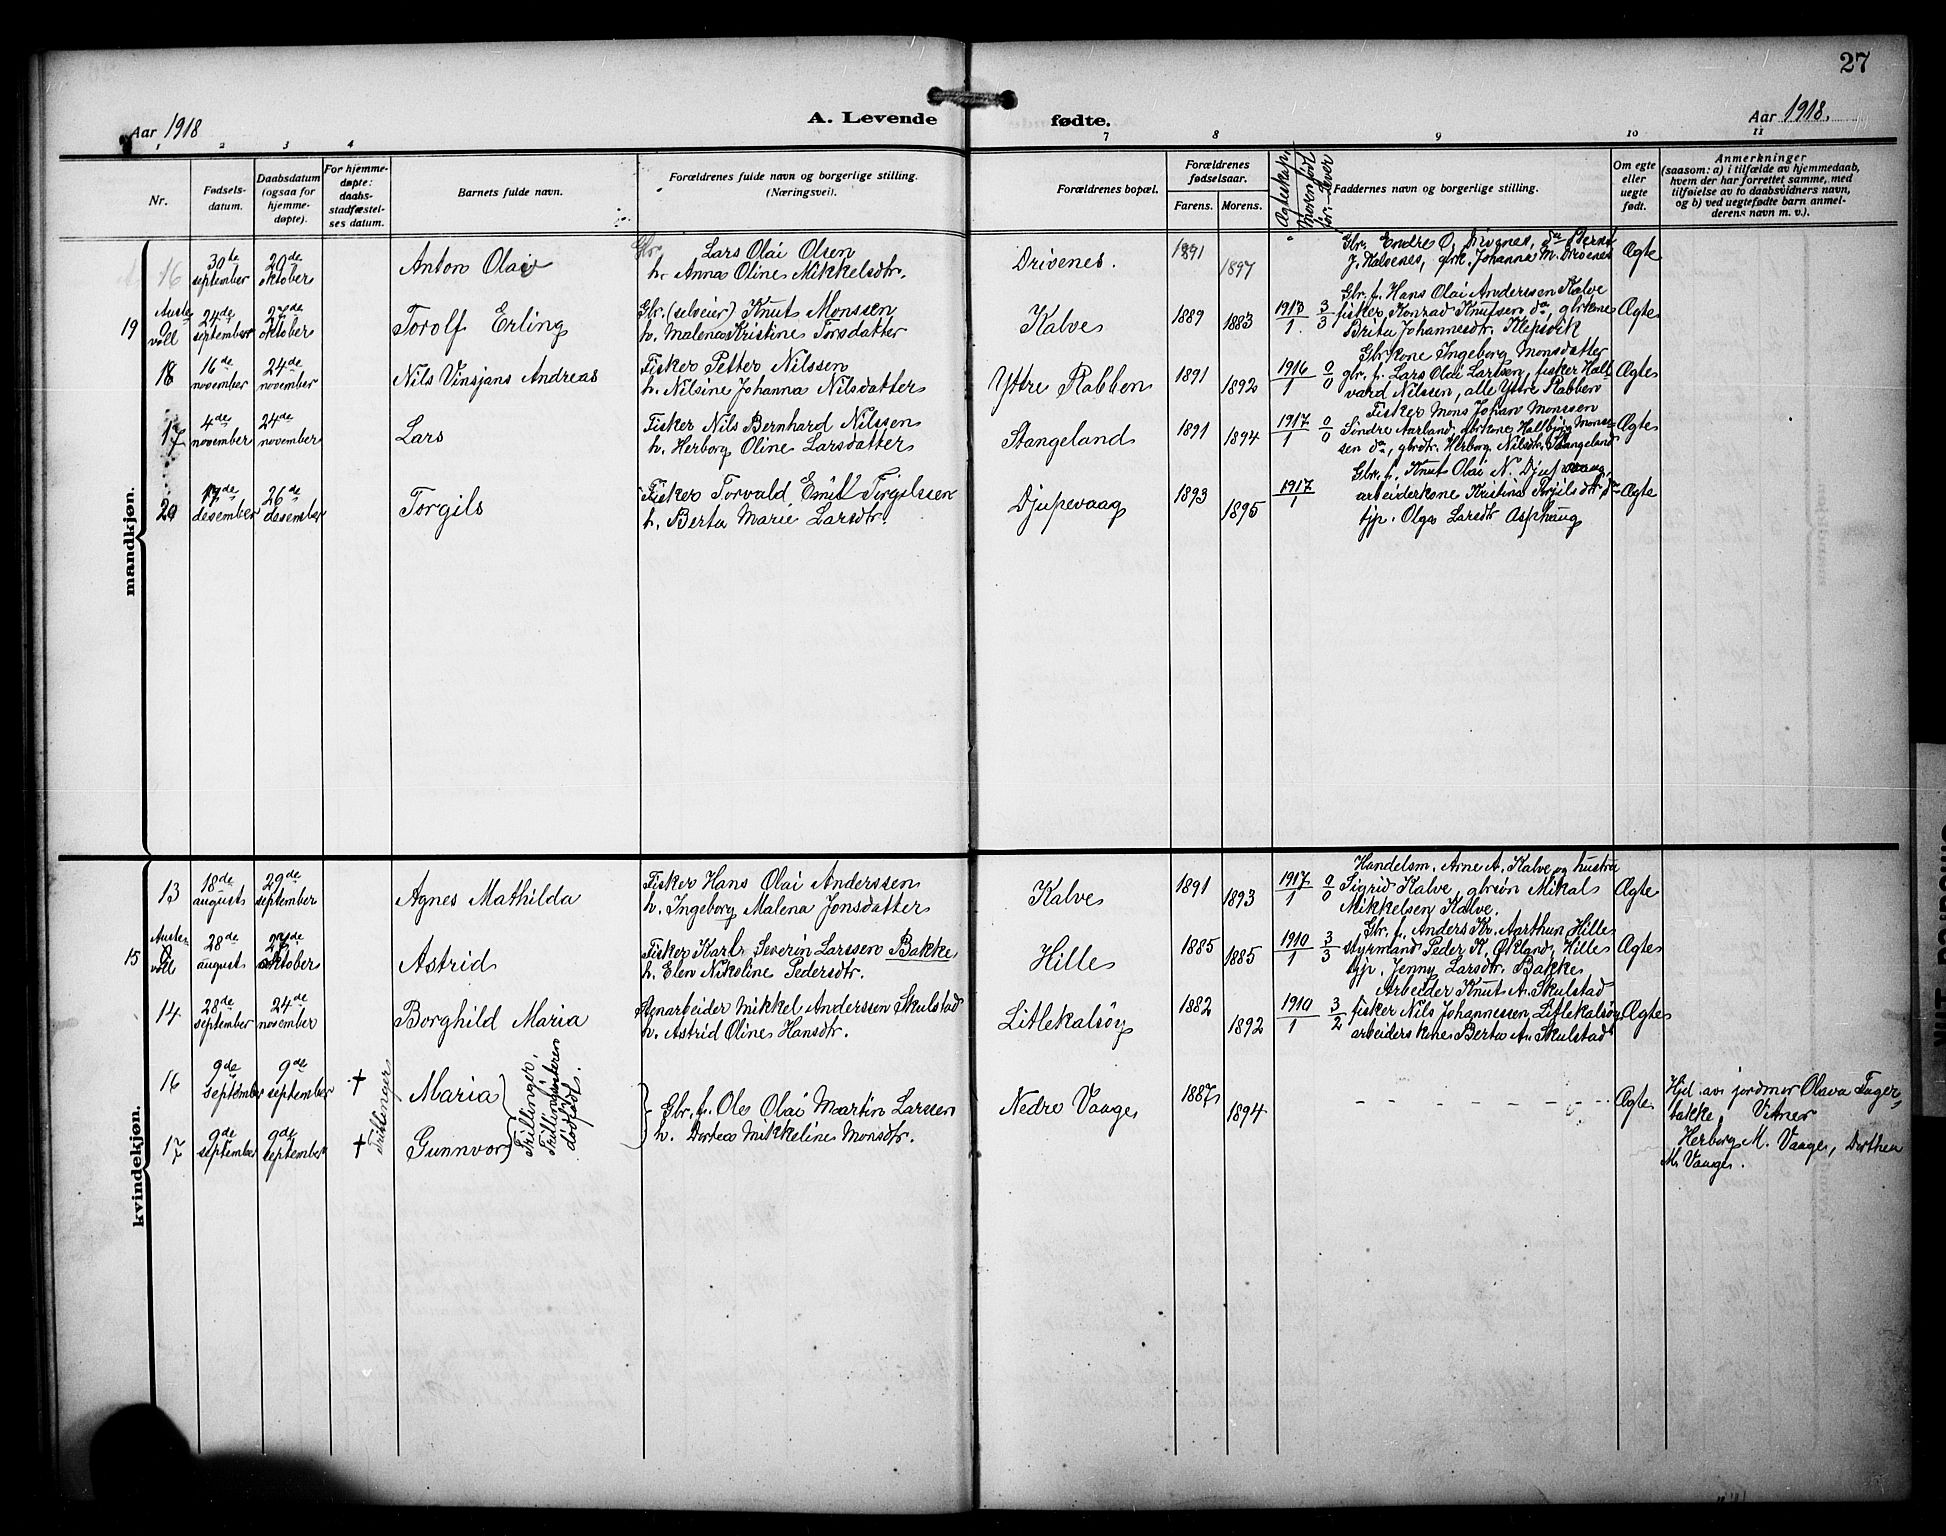 27
Aar 1918
A. Levende fødte.
Aar 1918.
1 2 3 4 7 8 9 10 11
Nr.
Fødsels-
datum.
Daabsdatum
(ogsaa for
hjemme-
døpte).
For hjemme-
døpte:
daabs-
stadfæstel-
ses datum.
Barnets fulde navn.
Forældrenes fulde navn og borgerlige stilling.
(Næringsvei).
Forældrenes bopæl.
Forældrenes
fødselsaar.
Farens. Morens.
Ægteskap,
Moren født
før. Lever
Faddernes navn og borgerlige stilling.
Om egte
eller
uegte
født.
Anmerkninger
(saasom: a) i tilfælde av hjemmedaab,
hvem der har forrettet samme, med
tilføielse av to daabsvidners navn,
og b) ved uegtefødte barn anmel-
derens navn m. v.).
mandkjøn.
16
30te
september
20de
oktober
Anton Olai
Gbr. Lars Olai Olsen
h. Anna Oline Mikkelsdtr.
Drivenes.
1891
1897
Gbr. Endre O. Drivenes, da
J. Kalvenes, grk. Johanna M. Drivenes
Ægte
19
Auste
voll
24de
september
27de
oktober
Torolf Erling
Gbr. (selveier) Knut Monssen
h. Malena Kristine Torsdatter
Kalve
1889
1883
1913 3
1. 3
Gbr. f. Hans Olai Anderssen Kalve
fisker Konrad Knutsen da, gbrkone
Brita Johannesdtr. Klepsvik
Ægte
18
16de
november
24de
november
Nils Vinsjans Andreas
Fisker Petter Nilssen
h. Nilsine Johanna Nilsdatter
Yttre Rabben
1891
1892
1916 0
1 0
Gbrkone Ingeborg Monsdatter
gbr. f. Lars Olai Larssen, fisker Hall-
vard Nilssen, alle Yttre Rabben
Ægte
17
4de
november
24de
november
Lars
Fisker Nils Bernhard Nilssen
h. Herborg Oline Larsdatter
Stangeland
1891
1894
1917 0
1 0
Fisker Mons Johan Monssen
Sindre Aarland, gbrkone Hallbjørg Mons-
sen da, gbrdtr. Herborg Nilsdtr. Stangeland
Ægte
20
17de
desember
26de
desember
Torgils
Fisker Torvald Emil Torgilssen
h. Berta Marie Larsdtr.
Djupevaag
1893
1895
1917
1
Gbr. f. Knut Olai N. Djupevaag,
arbeiderkone Kristina Torgilsdtr da
tjp. Olga Larsdtr Asphaug
Ægte
kvindekjøn.
13
18de
august
29de
september
Agnes Mathilda
Fisker Hans Olai Anderssen
h. Ingeborg Malena Jonsdatter
Kalve
1891
1893
1917 0
1 0
Handelsm. Arne A. Kalve og hustru
Sigrid Kalve, gbrsøn Mikal
Mikkelsen Kalve.
Ægte
15
Auste-
voll
28de
august
27de
oktober
Astrid
Fisker Karl Severin Larssen Bakke
h. Elen Nikoline Pedersdtr.
Hille
1885
1885
1910 3
1 3
Gbr. f. Anders Kr. Aarthun Hille
styrmand Peder K. Økland, Hille
tjp. Jenny Larsdtr. Bakke
Ægte
14
28de
september
24de
november
Borghild Maria
Stenarbeider Mikkel Anderssen Skulstad
h. Astrid Oline Hansdtr.
Litlekalsøy
1882
1892
1910 3
1 2
Arbeider Knut A. Skulstad
fisker Nils Johannessen Litlekalsøy
arbeiderskone Berta A. Skulstad
Ægte
16
9de
september
9de
september
†
Trillinger
Maria
17
9de
september
9de
september
†
Gunnvor
Trillinger,
Trillingsøsteren
dødfødt.
Gbr. f. Ole Olai Martin Larssen
h. Dortea Mikkeline Monsdtr.
Nedre Vaage
1887
1894
- - - - - - -
Ægte
Hjd. av jordmor Olava Fager-
bakke, Vitner
Herborg M. Vaage, Dorthea
M. Vaage.